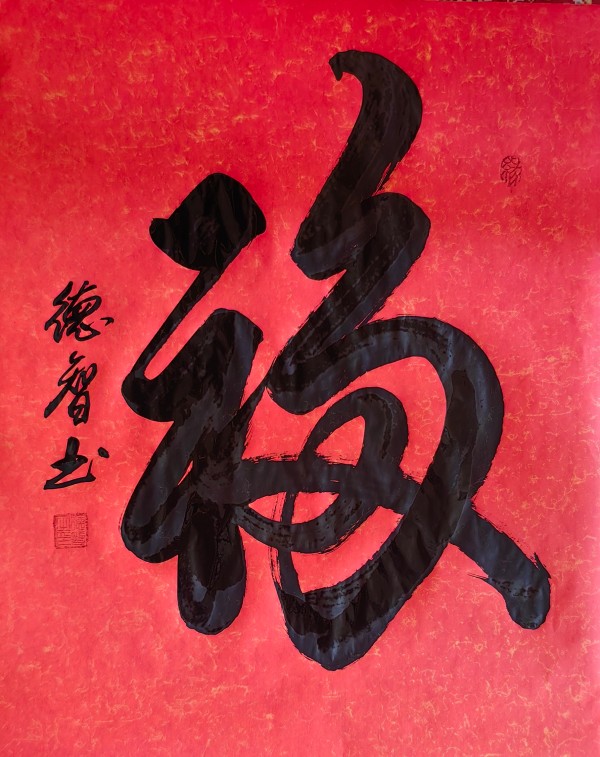 福
德智书